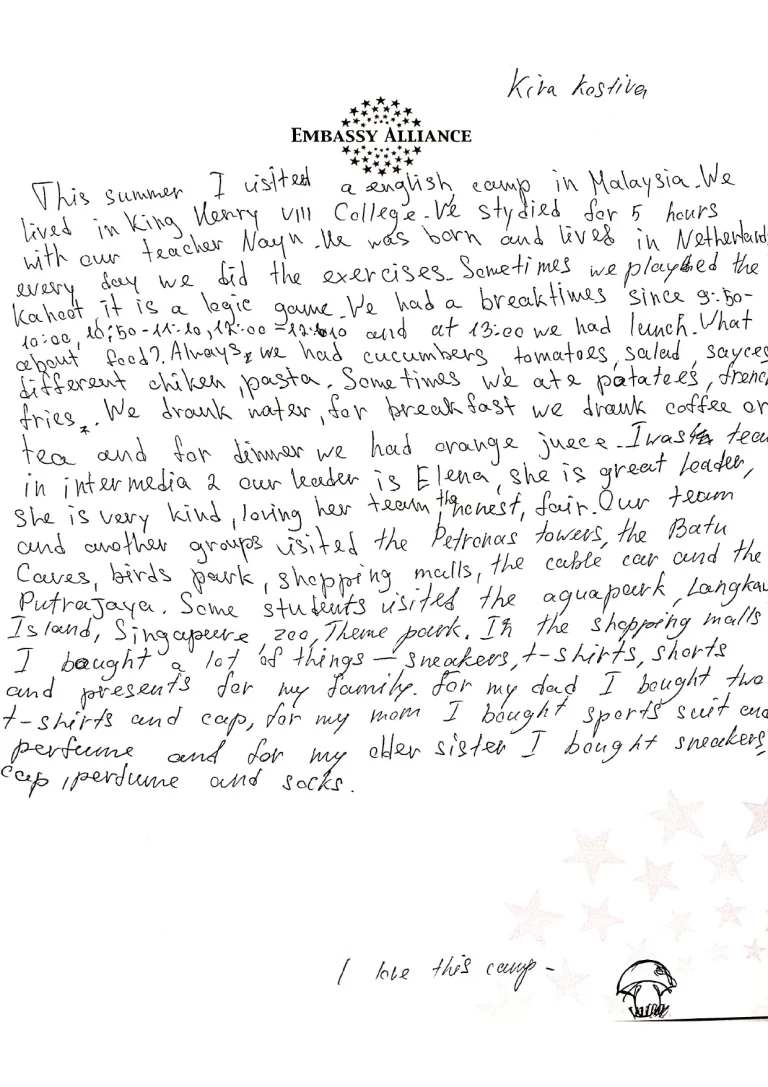 Kira Kostiva
EMBASSY ALLIANCE
This summer I visited a english camp in Malaysia. We
lived in King Henry VIII College. We stydied for 5 hours
with our teacher Nayn. He was born and lives in Netherland
every day we did the exercises. Sometimes we played the
Kahoot, it is a logic game. We had a breaktimes since 9:50-
10:00, 10:50-11:10, 12:00-12:10 and at 13:00 we had lunch. What
about food? Always we had cucumbers tomatoes, salad, sayces
different chiken, pasta. Sometimes we ate patatees, frenc
fries. We drank water, for breakfast we drank coffee or
tea and for dinner we had orange juece. I was team
in intermedia 2 our leader is Elena, she is great leader,
she is very kind, loving her team, the honest, fair. Our team
and another groups visited the Petronas towers, the Batu
Caves, birds park, shopping malls, the cable car and the
Putrajaya. Some students visited the aquapark, Langkau
Island, Singapure, zoo, Theme park. In the shopping malls
I bought a lot of things - sneakers, t-shirts, shorts
and presents for my family. For my dad I bought two
t-shirts and cap, for my mom I bought sports suit and
perfume and for my older sister I bought sneakers,
cap, perfume and socks.
I love this camp -